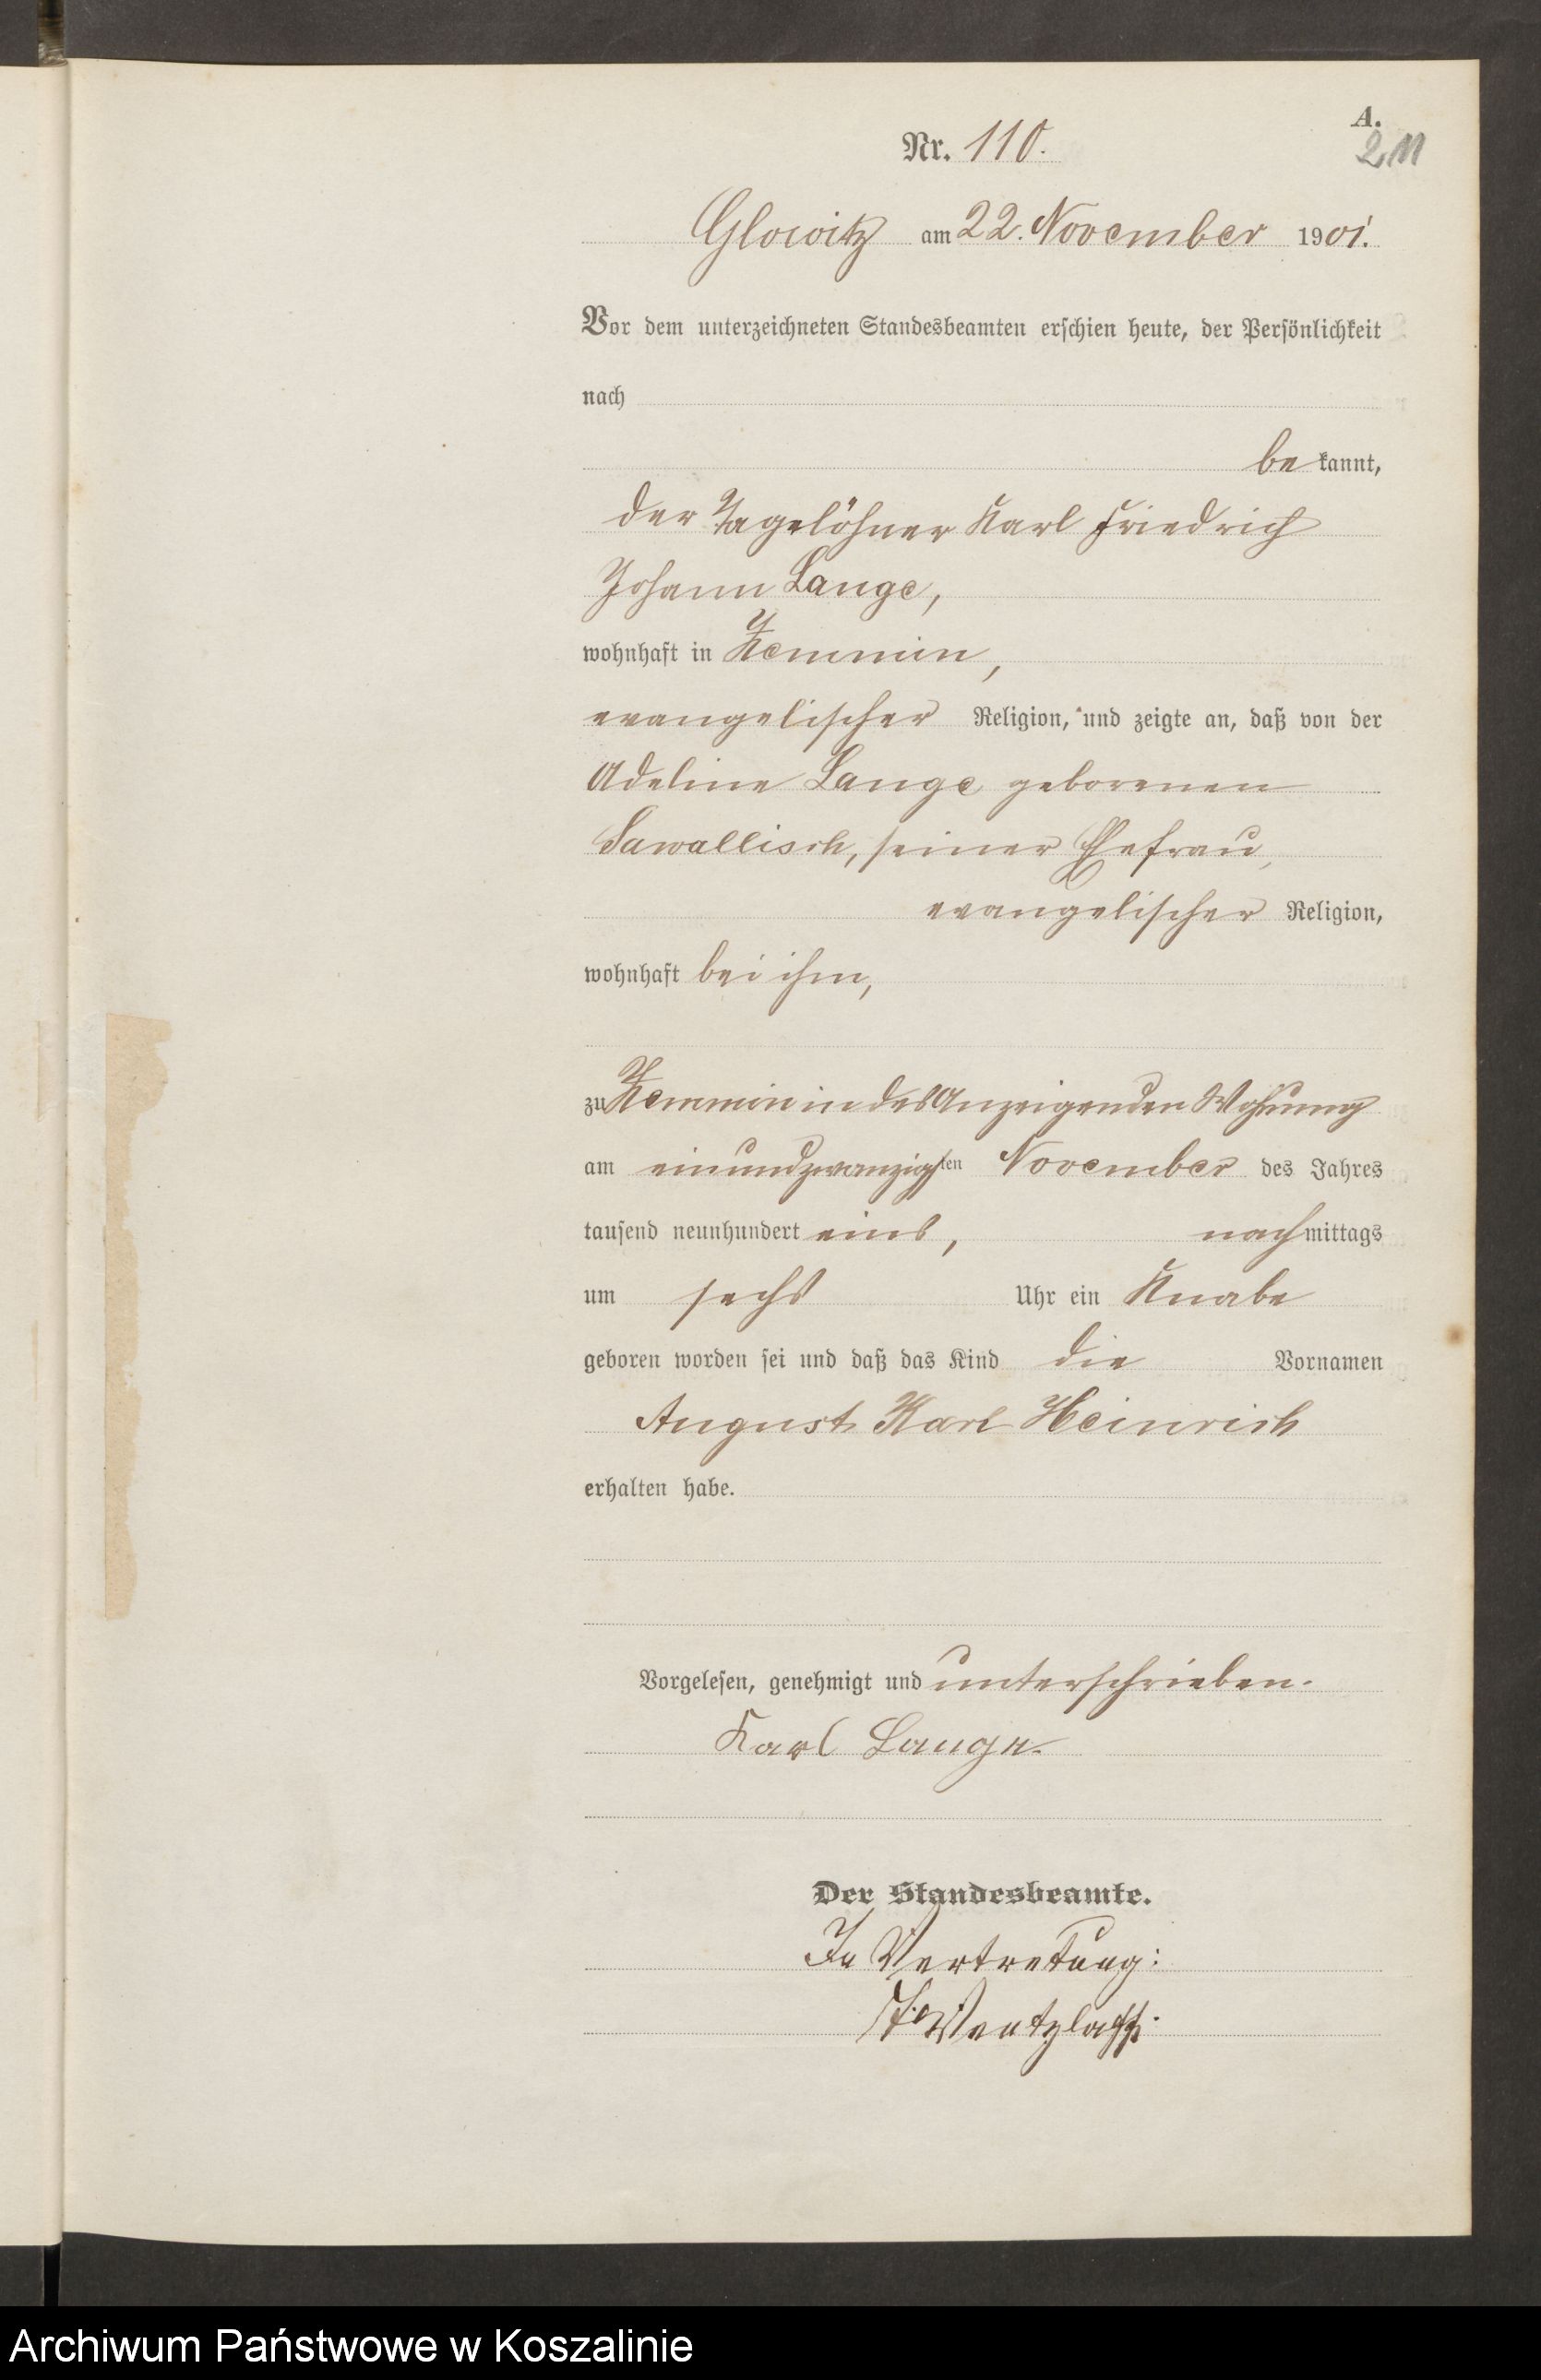 A.
Nr. 110.
211
Glowitz am 22. November 1901.
Vor dem unterzeichneten Standesbeamten erschien heute, der Persönlichkeit
nach
be kannt,
der Tagelöhner Karl Friedrich
Johann Lange,
wohnhaft in Zemmin,
evangelischer Religion, und zeigte an, daß von der
Adeline Lange geborenen
Sawallisch, seiner Ehefrau,
evangelischer Religion,
wohnhaft bei ihm,
zu Zemmin in des Anzeigenden Wohnung
am einundzwanzigsten November des Jahres
tausend neunhundert eins, nachmittags
um sechs Uhr ein Knabe
geboren worden sei und daß das Kind die Vornamen
August Karl Heinrich
erhalten habe.
Vorgelesen, genehmigt und unterschrieben.
Karl Lange.
Der Standesbeamte.
In Vertretung:
Wentzlaff.
Archiwum Państwowe w Koszalinie